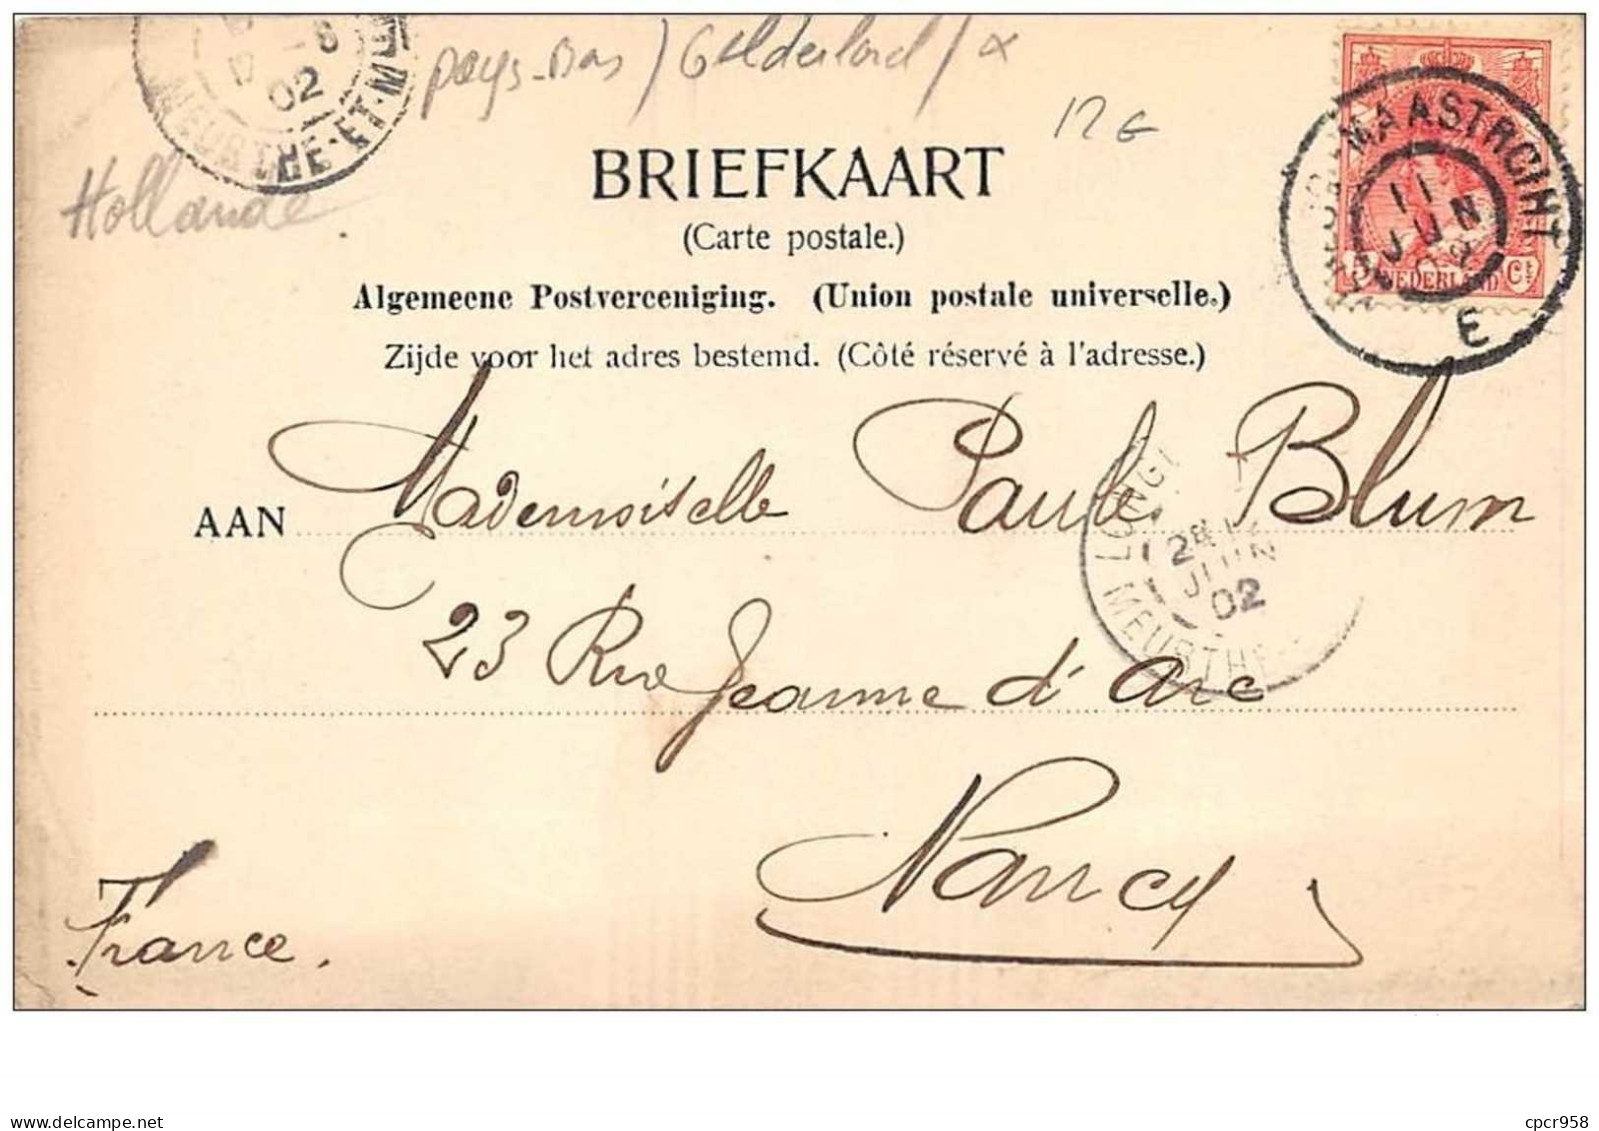 02
MEURTHE-ET-M
pays-Bas / Gelderland / x
12 G
Hollande
BRIEFKAART
(Carte postale.)
Algemeene Postvereeniging. (Union postale universelle.)
Zijde voor het adres bestemd. (Côté réservé à l'adresse.)
MAASTRCIHT
11
JUN
02
E
5 NEDERLAND Ct
AAN Mademoiselle Paule Blum
LONG
JUIN
02
MEURTHE
23 Rue Jeanne d'Arc
Nancy
France.
delcampe.net
cpcr958